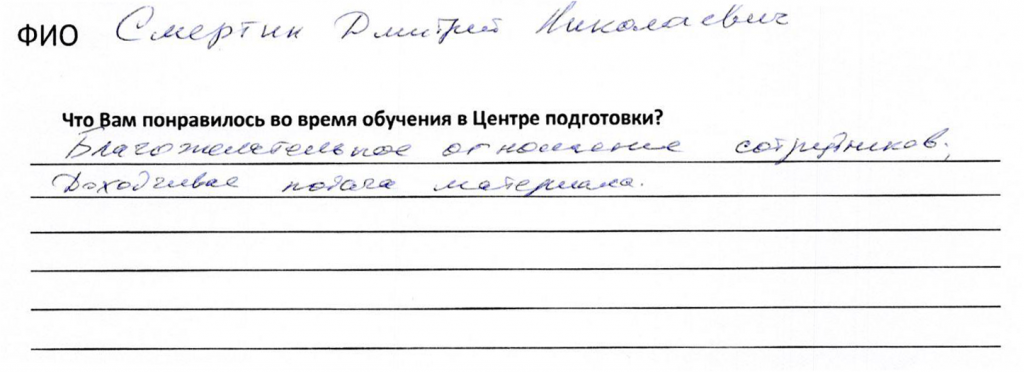 ФИО Смертин Дмитрий Николаевич
Что Вам понравилось во время обучения в Центре подготовки?
Благожелательное отношение сотрудников;
Доходчивае подача материала.